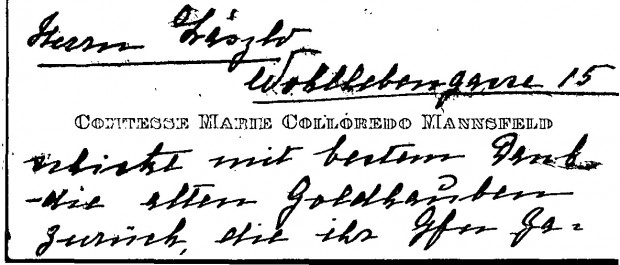 Herrn László
Wohllebengasse 15
COMTESSE MARIE COLLOREDO MANNSFELD
schickt mit bestem Dank
die alten Goldhauben
zurück, die ihr Hfn Ga-